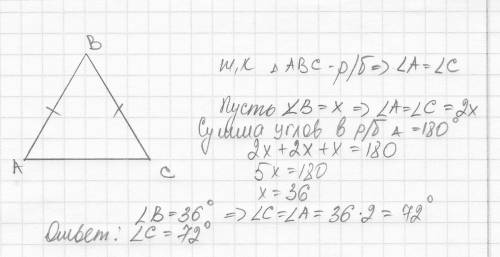 B
A
C
т.к ∆ ABC - р/б => ∠A = ∠C
Пусть ∠B = x => ∠A = ∠C = 2x
Сумма углов в р/б ∆ = 180°
2x + 2x + x = 180
5x = 180
x = 36
∠B = 36° => ∠C = ∠A = 36 · 2 = 72°
Ответ: ∠C = 72°